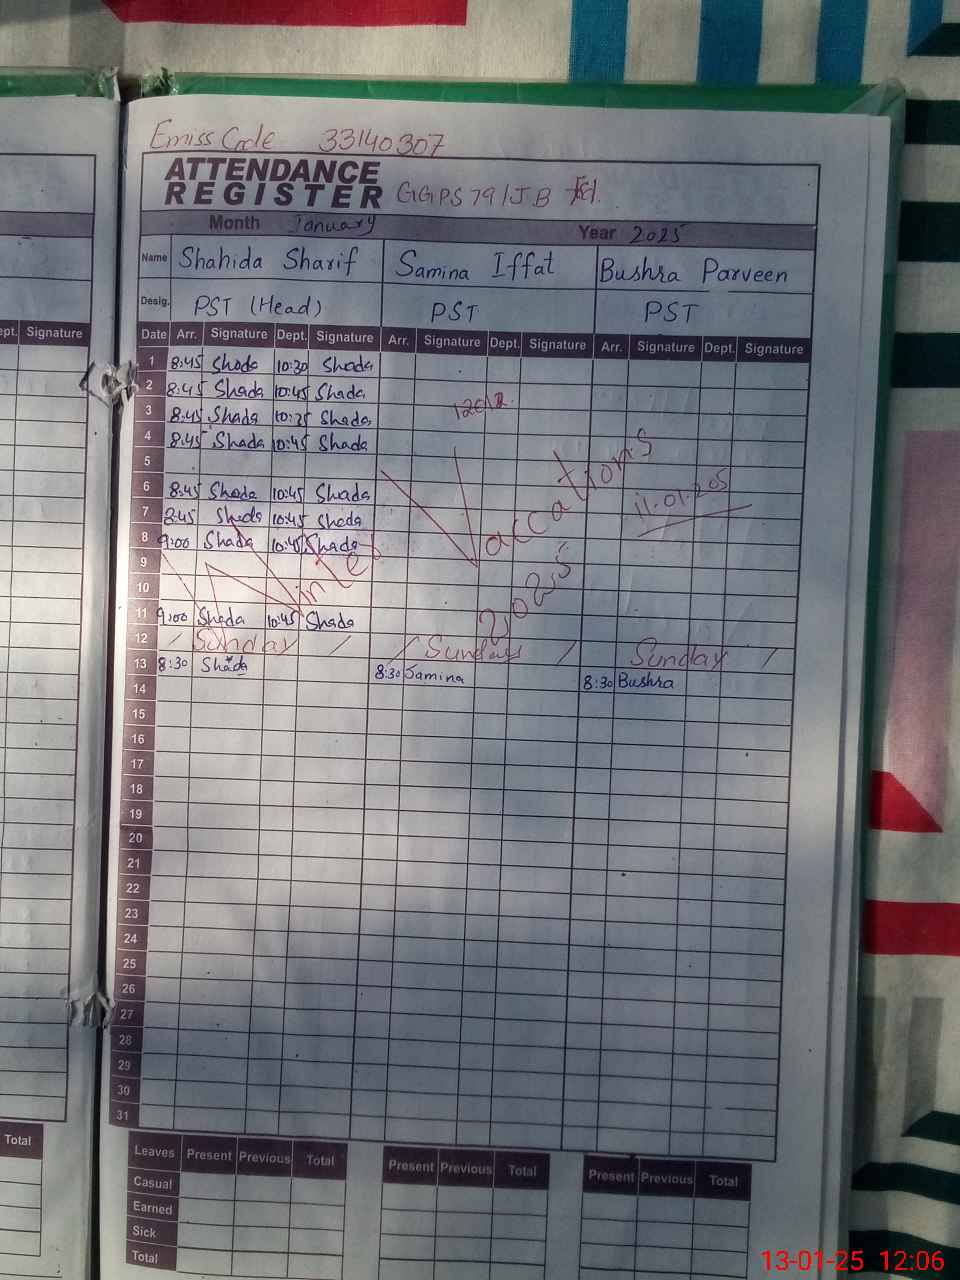 Emiss Code 33140307
ATTENDANCE
REGISTER GGPS 79/JB
Month January Year 2025
Name Shahida Sharif Samina Iffat Bushra Parveen
Desig. PST (Head) PST PST
ept. Signature
Date Arr. Signature Dept. Signature Arr. Signature Dept. Signature Arr. Signature Dept. Signature
1 8:45 Shada 10:30 Shada
2 8:45 Shada 10:45 Shada
3 8:45 Shada 10:35 Shada
4 8:45 Shada 10:45 Shada
5
6 8:45 Shada 10:45 Shada
7 8:45 Shada 10:45 Shada
8 9:00 Shada 10:45 Shada
9
10
Winter Vaccations
2025
11.01.205
11 9:00 Shada 10:45 Shada
12 Sunday Sunday Sunday
13 8:30 Shada 8:30 Samina 8:30 Bushra
14
15
16
17
18
19
20
21
22
23
24
25
26
27
28
29
30
31
Total
Leaves Present Previous Total Present Previous Total Present Previous Total
Casual
Earned
Sick
Total
13-01-25 12:06